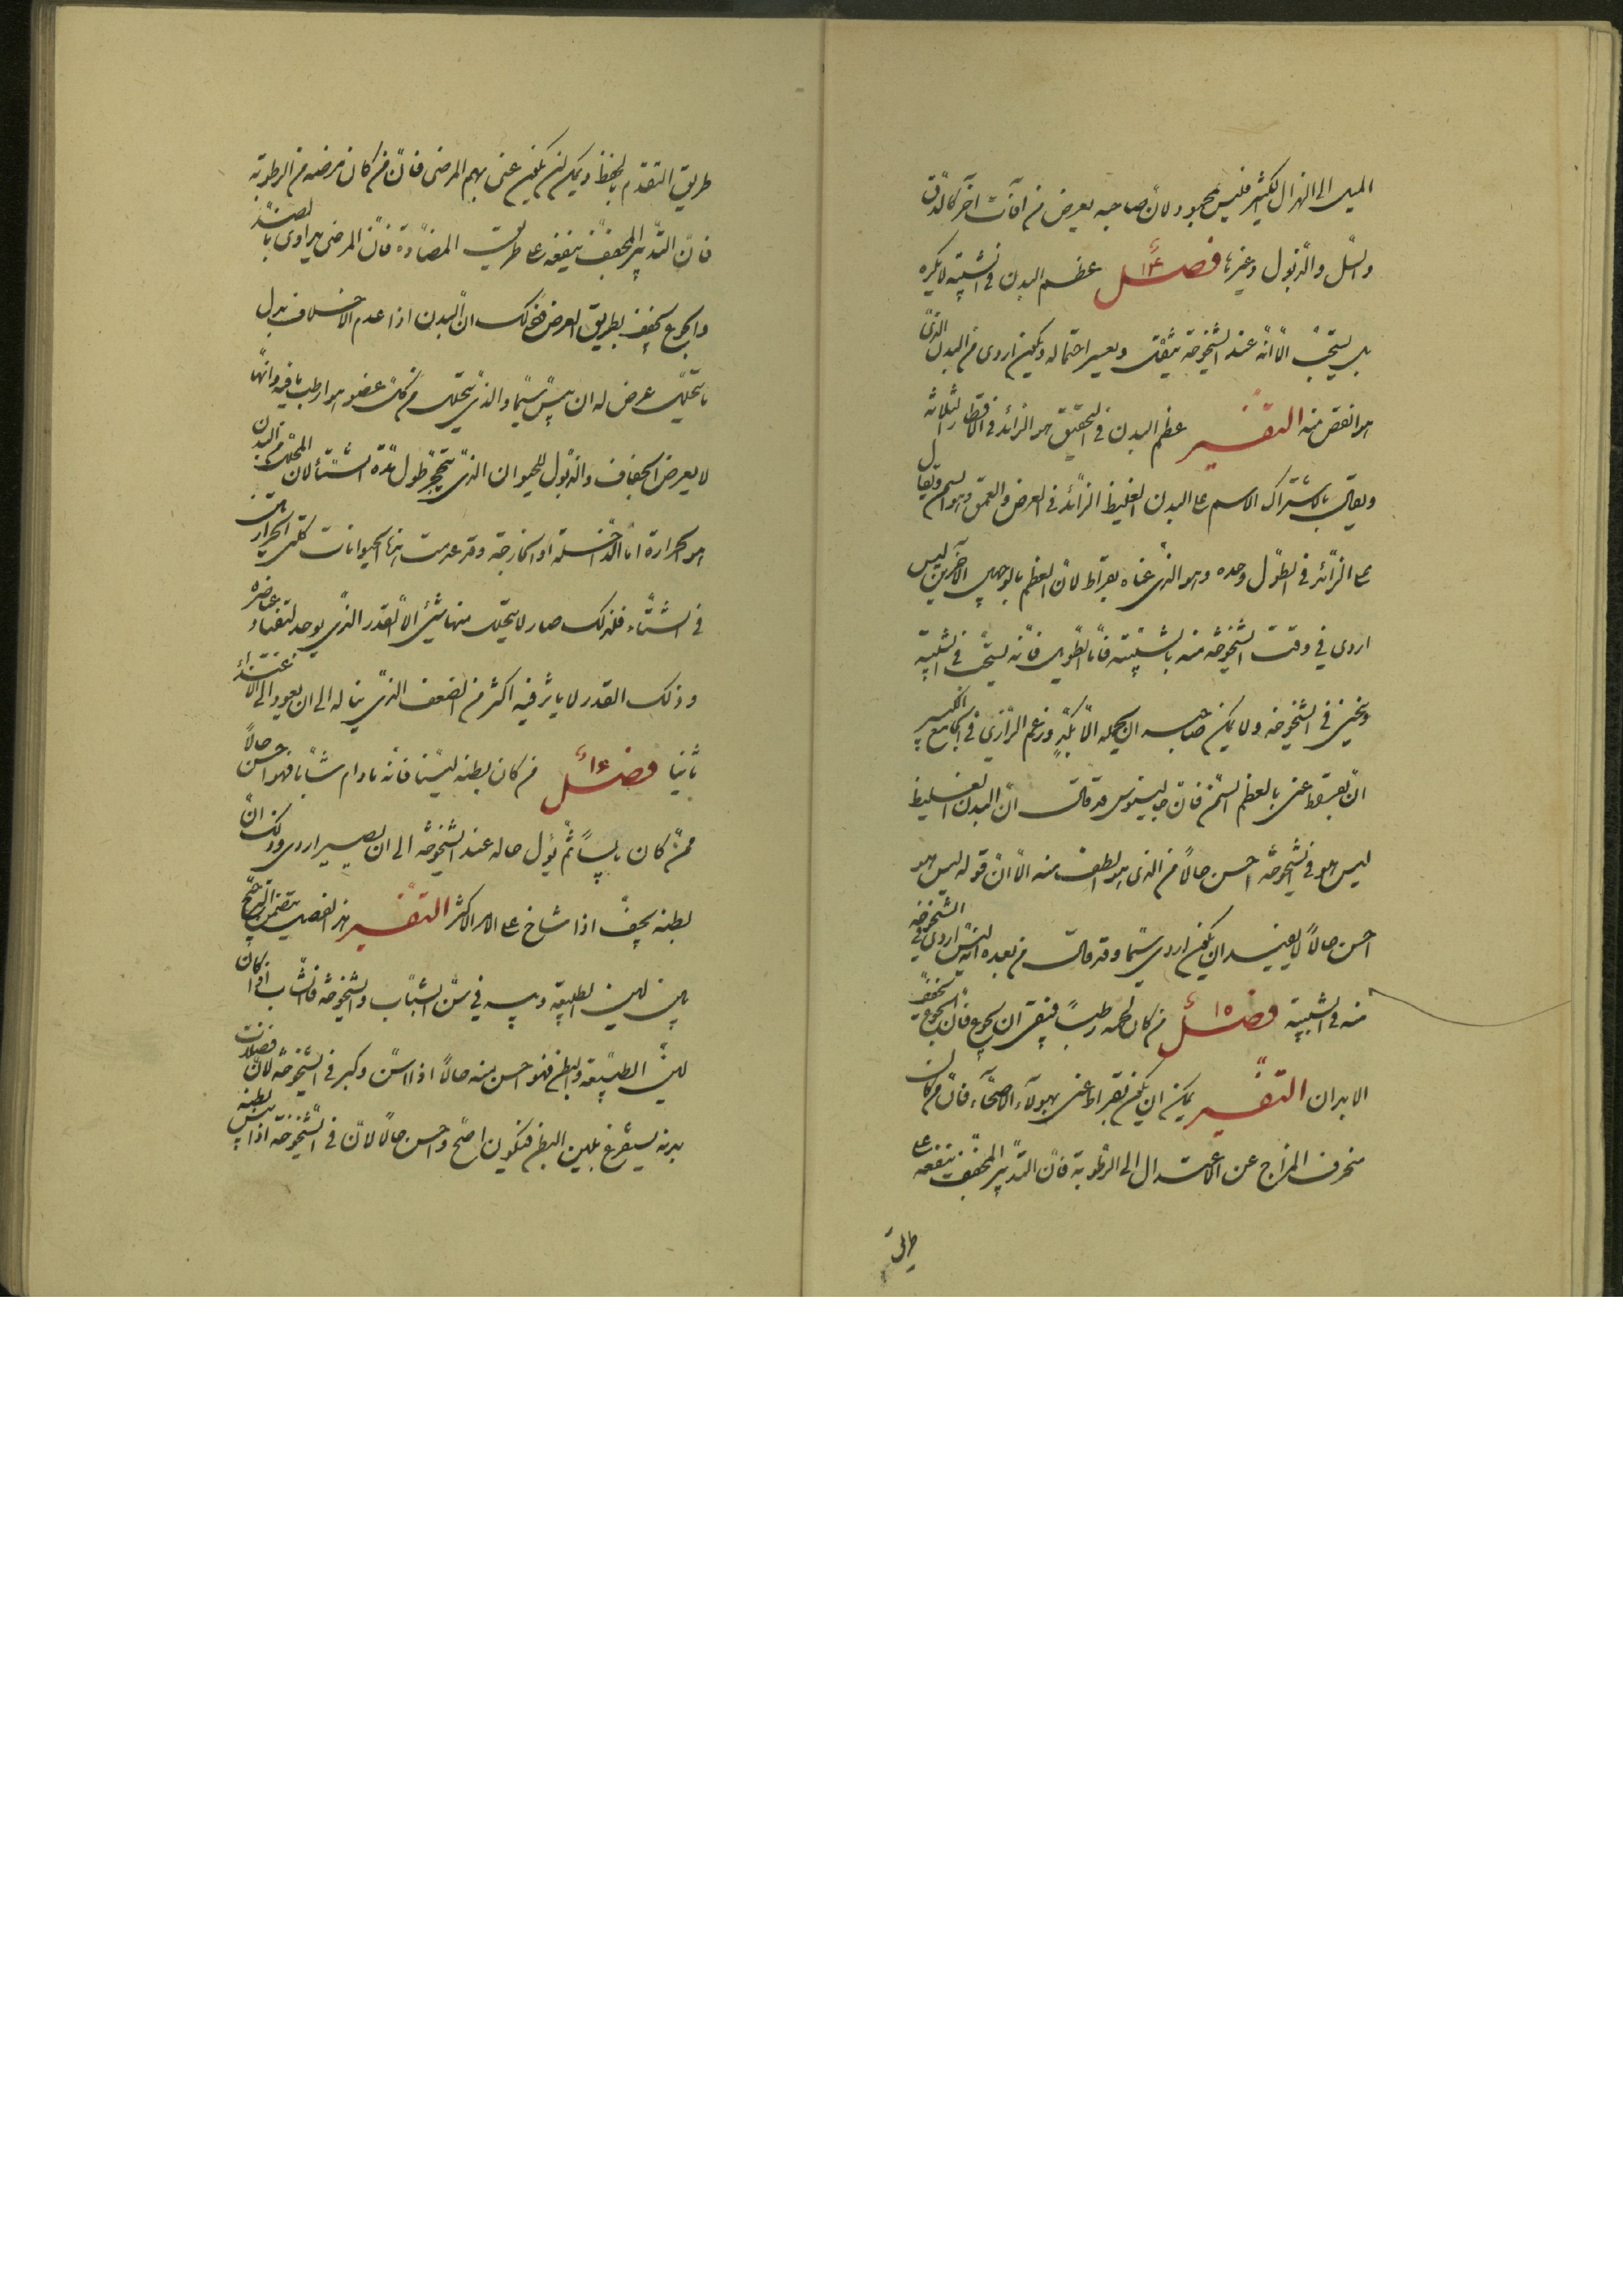 الميل الى الهزال الكثير فليس بمحمود لان صاحبه يعرض من آفات آخر كالدق
والسل والذبول وغيرها فصل ١٤ عظم البدن في الشبيبة لا يكره
بل يستحب الا انه عند الشيخوخة يثقل ويعسر احتماله ويكون اردى من البدن الذي
هو انقص منه التفسير عظم البدن في التحقيق هو الزائد في الاقطار الثلاثة
ويقال باشتراك الاسم على البدن الغليظ الزائد في العرض والعمق وهو السمن ويقال
على الزائد في الطول وحده وهو الذي عناه بقراط لان العظم بالوجهين الآخرين ليس
اردى في وقت الشيخوخة منه بالشبيبة فاما الطويل فانه يستحب في الشبيبة
وينحنى في الشيخوخة ولا يمكن صاحبه ان يحمله الا بكد وزعم الرازي في الجامع الكبير
ان بقراط عنى بالعظم السمن فان جالينوس قد قال ان البدن الغليظ
ليس هو في الشيخوخة احسن حالا من الذي هو الطف منه الا ان قوله ليس هو
احسن حالا لا يفيد ان يكون اردى سيما وقد قال من بعده انه ليس اردى في الشيخوخة
منه في الشبيبة فصل ١٥ من كان لحمه رطبا فينبغي ان يجوع فان الجوع يجفف
الابدان التفسير يمكن ان يكون بقراط عنى بهولاء الاصحاء فان من كان
منحرف المزاج عن الاعتدال الى الرطوبة فان التدبير المجفف ينفعه على
طريق
طريق التقدم بالحفظ ويمكن ان يكون عنى بهم المرضى فان من كان مرضه من الرطوبة
فان التدبير المجفف ينفعه على طريق المضادة فان المرضى يداوى بالضد
والجوع يجفف بطريق العرض وذلك ان البدن اذا عدم الاخلاف بدل
ما يتحلل عرض له ان ييبس سيما والذي يتحلل من كل عضو هو ارطب ما فيه وانما
لا يعرض الجفاف والذبول للحيوان الذي يتحجر طول مدة الشتاء لان المحلل من البدن
هو الحرارة اما الداخلة او الخارجة وقد عدمت هذه الحيوانات كلتى الحرارتين
في الشتاء فلذلك صار لا يتحلل منها شئ الا القدر الذي يوجد لتضاد عناصره
وذلك القدر لا ياثر فيه اكثر من الضعف الذي يناله الى ان يعود الى الاغتذاء
ثانيا فصل ١٦ من كان بطنه لينا فانه ما دام شابا فهو احسن حالا
ممن كان يابسا ثم يؤل حاله عند الشيخوخة الى ان يصير اردى وذلك ان
بطنه يجف اذا شاخ على الامر الاكثر التفسير هذا الفصل يتضمن الترجيح
بين لين الطبيعة ويبسه في سن الشباب والشيخوخة فالشاب اذا كان
لين الطبيعة والبطن فهو احسن منه حالا اذا اسن وكبر في الشيخوخة لان فضلات
بدنه يستفرغ بلين البطن فيكون اصح واحسن حالا لان في الشيخوخة اذا يبس بطنه